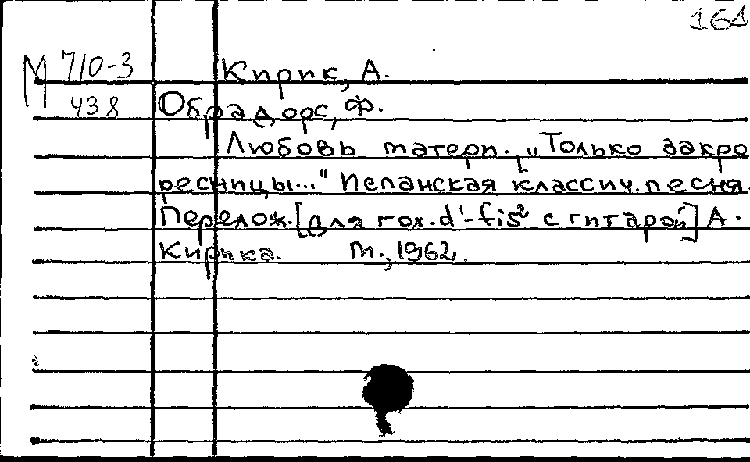 161
М 710-3
438
Кирик, А.
Обрадорс, Ф.
Любовь матери. „Только закро
ресницы..." Испанская классич. песня.
Перелож. [для гол. d'-fis² с гитарой] А.
Кирика. М., 1962.